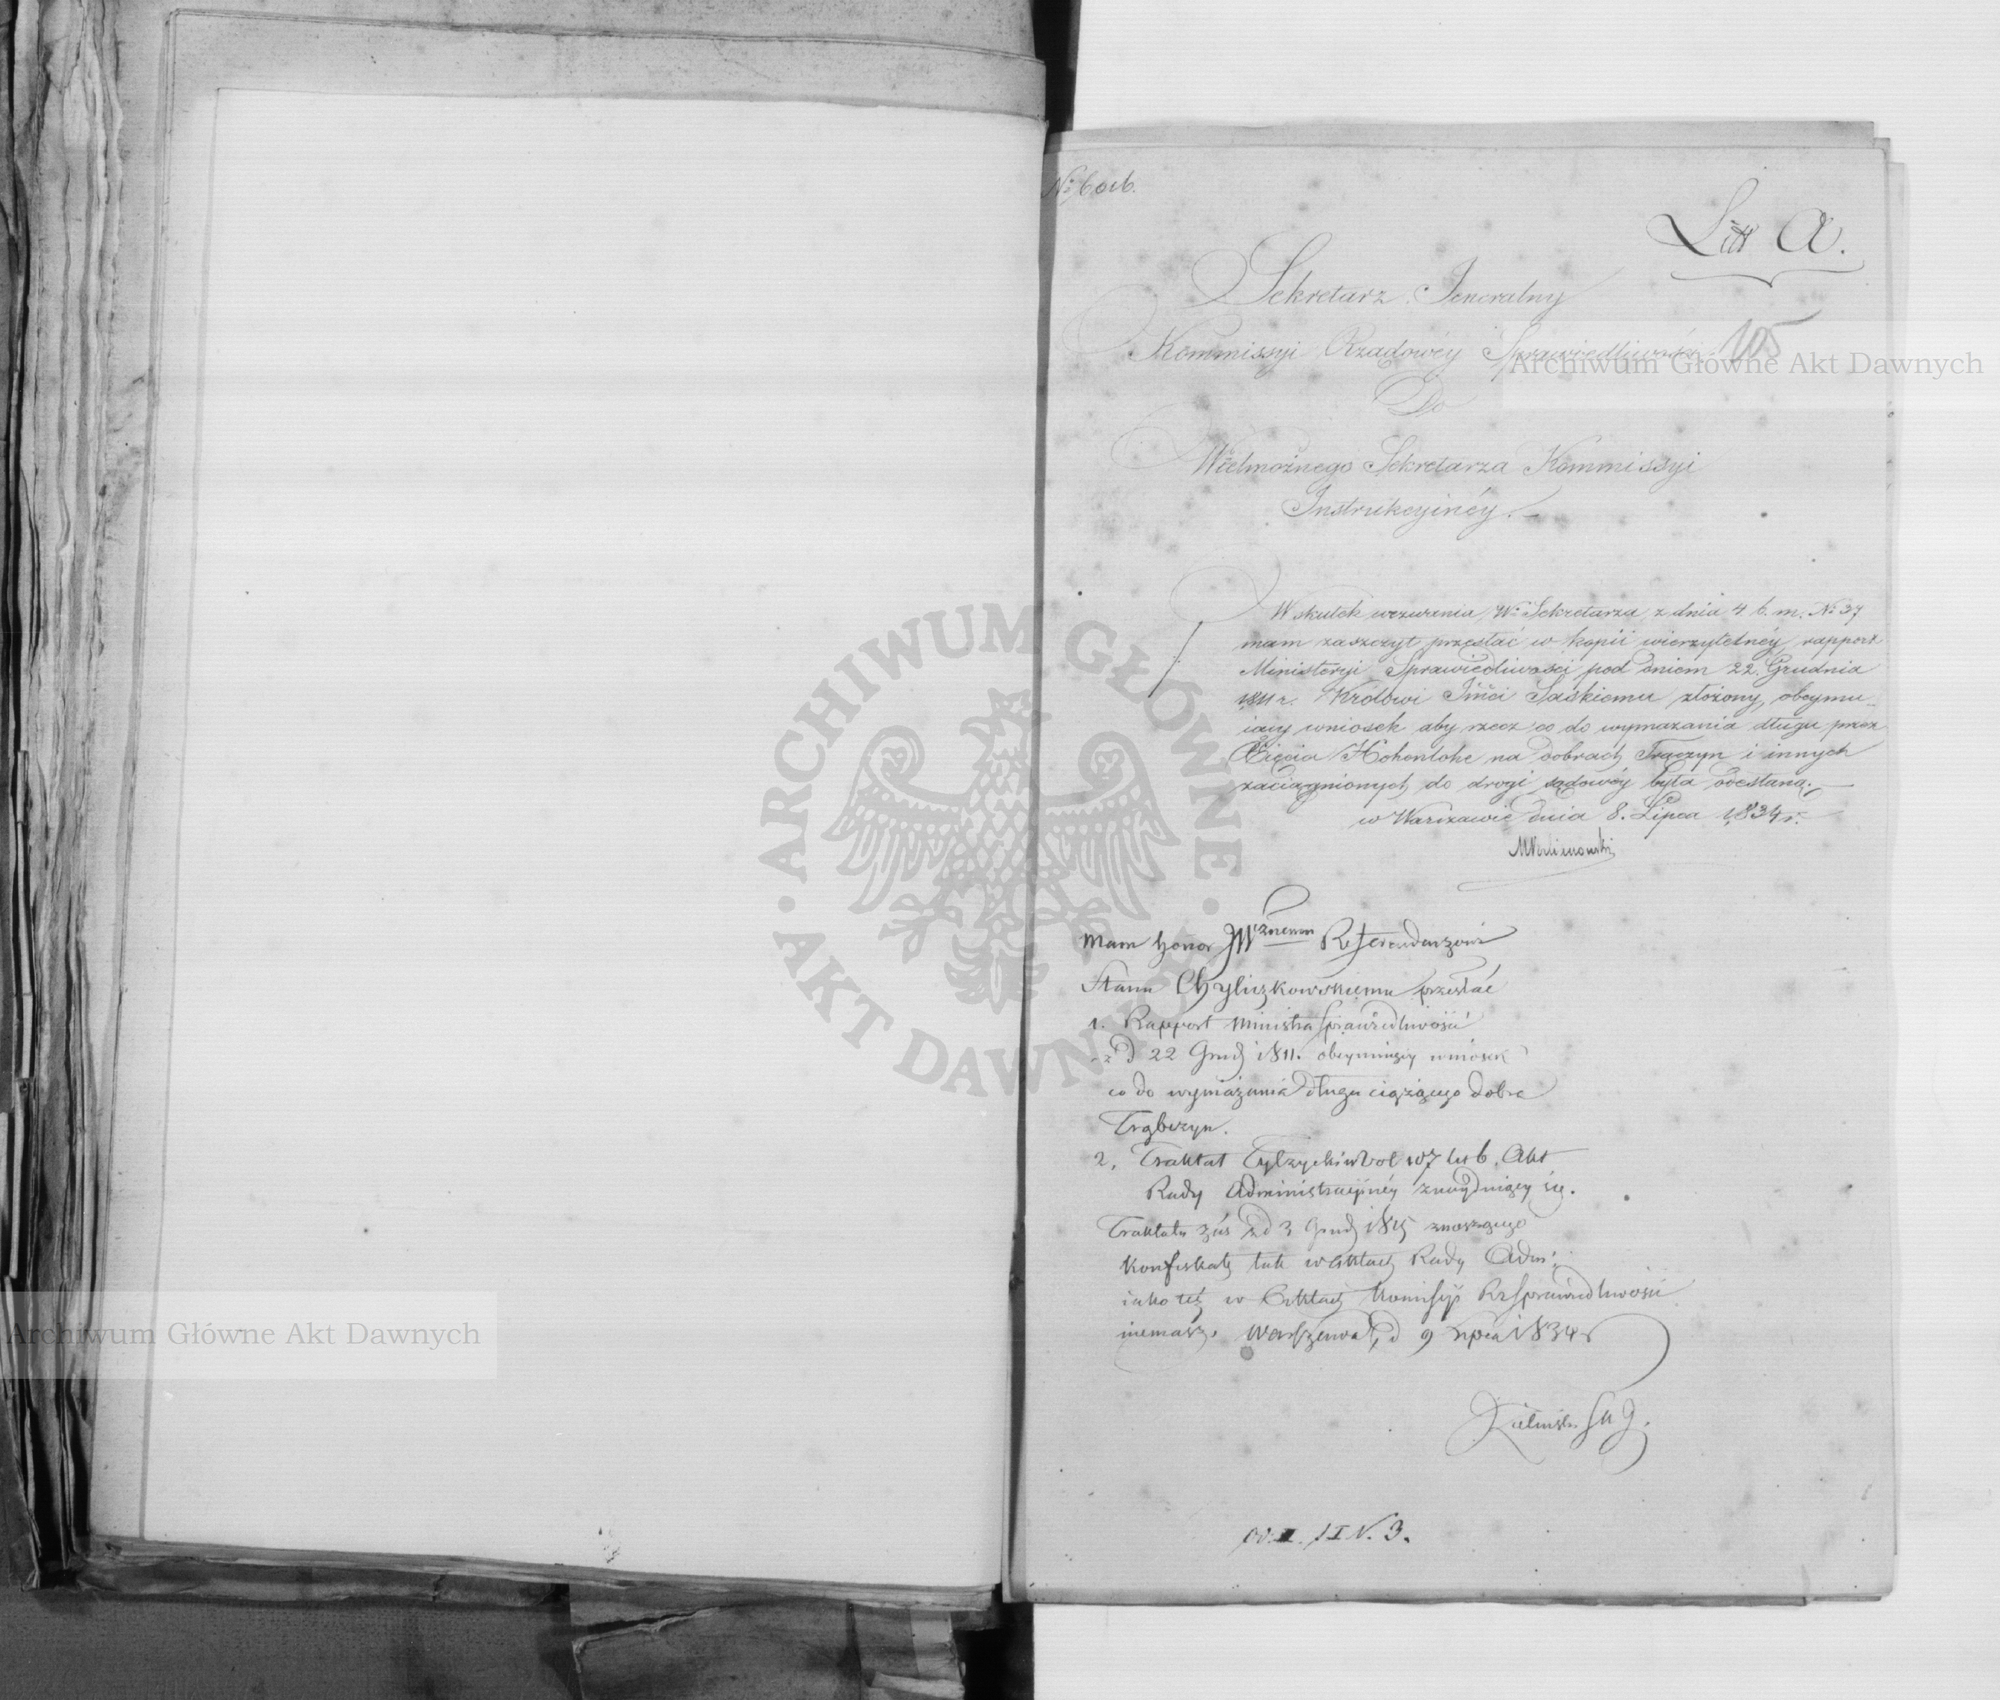 Litt A.
105
Sekretarz Jeneralny
Kommissyi Rządowéy Sprawiedliwości
Do
Wielmożnego Sekretarza Kommissyi
Instrukcyinéy.
W skutek wezwania W° Sekretarza z dnia 4 b. m. N° 37
mam zaszczyt przesłać w kopii wierzytelnéy rapport
Ministeryi Sprawiedliwości pod dniem 22. Grudnia
1811 r. Królowi Saskiemu złożony, obeymu-
iący wniosek aby rzecz co do wymazania długu przez
Xięcia Hohenlohe na dobrach i innych
zaciągnionych do drogi sądowéy była odesłana.
w Warszawie dnia 8. Lipca 1834 r.
Mam honor JW Referendarzowi
Stanu Chyliczkowskiemu przesłać
1. Rapport Ministra Sprawiedliwości
z d 22 Grud 1811. obeymuiący wniosek
co do wymazania długu ciążącego dobra
Trąbczyn.
2, Traktat Tylżycki w Vol 107 lit b. Akt
Rady Administracyinéy znayduiący się.
Traktatu zaś z d 3 Grud 1815 znoszącego
konfiskaty tak w aktach Rady Adm:
iako też w Aktach Komisyi Rz Sprawiedliwości
niemasz. Warszawa d 9 Lipca 1834 r
N. 3.
ARCHIWUM GŁÓWNE
AKT DAWNYCH
Archiwum Główne Akt Dawnych
Archiwum Główne Akt Dawnych